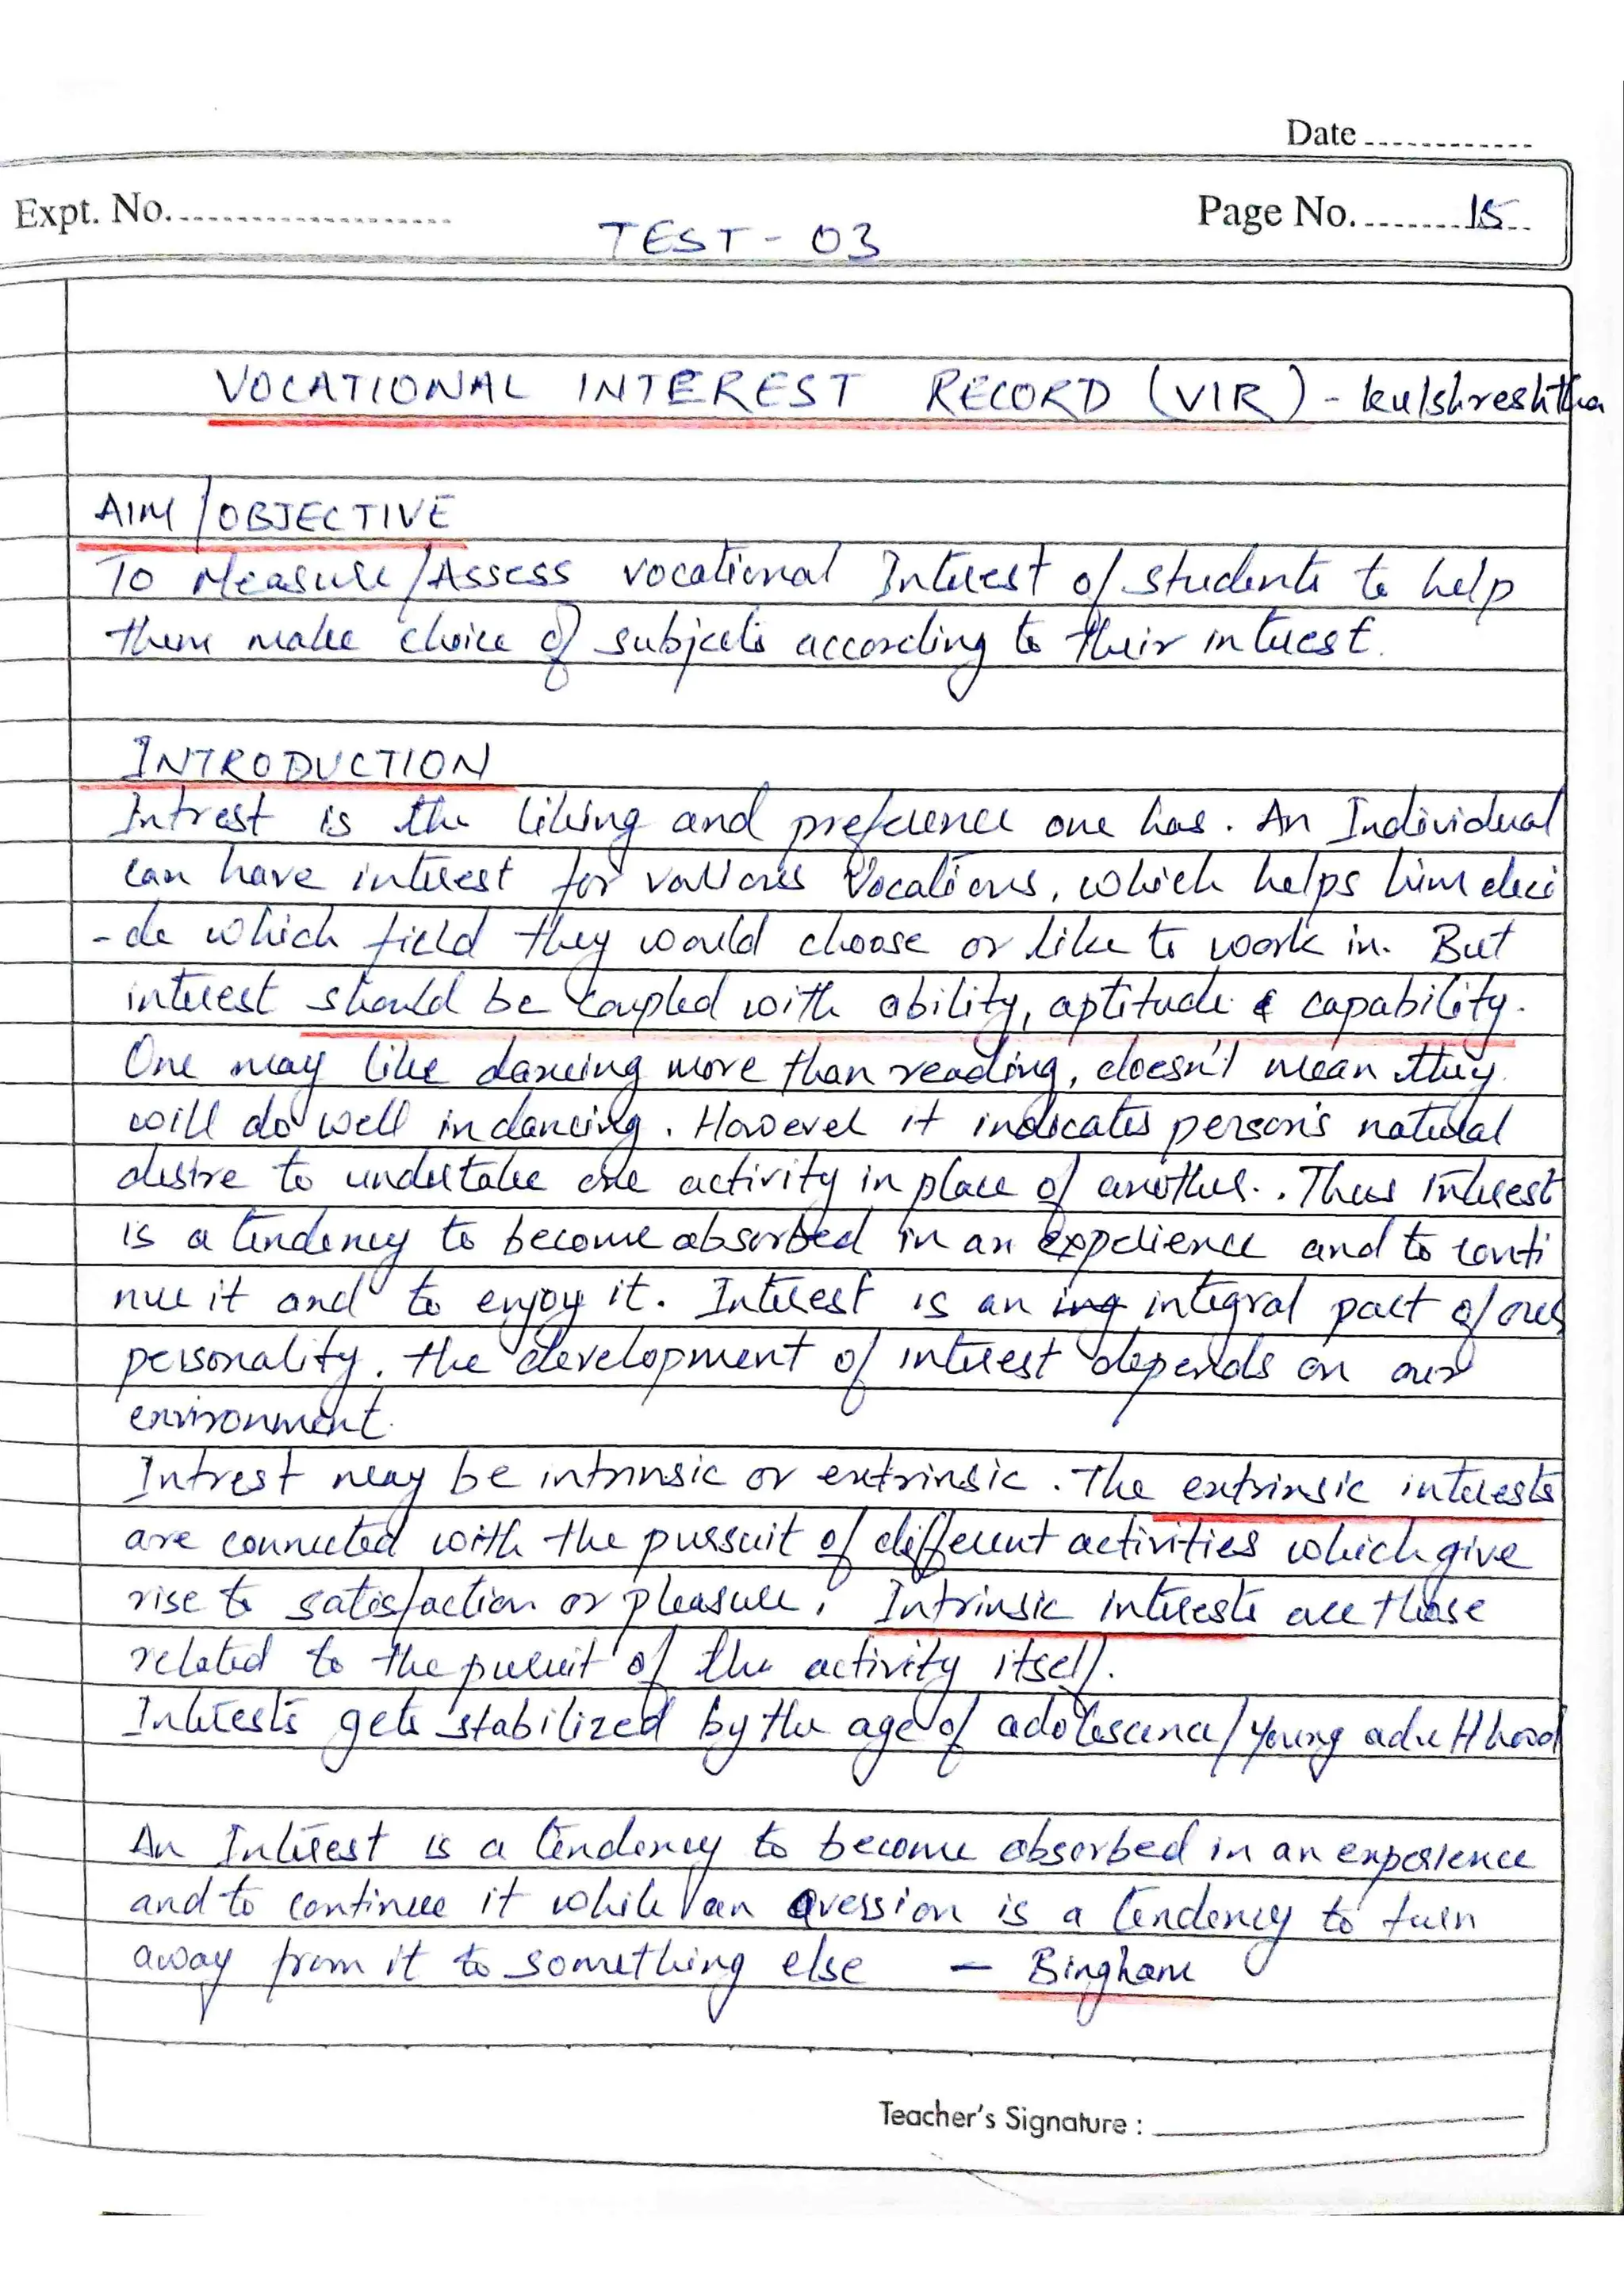 Date
Expt. No. Page No. 15
TEST - 03
VOCATIONAL INTEREST RECORD (VIR) - kulshreshtha
AIM/OBJECTIVE
To Measure/Assess vocational Interest of students to help
them make choice of subjects according to their interest.
INTRODUCTION
Intrest is the liking and preference one has. An Individual
can have interest for various Vocations, which helps him deci
-de which field they would choose or like to work in. But
interest should be coupled with ability, aptitude & capability.
One may like dancing more than reading, doesn't mean they
will do well in dancing. However it indicates person's natural
desire to undertake one activity in place of another.. Thus interest
is a tendency to become absorbed in an experience and to conti
nue it and to enjoy it. Interest is an ing integral part of our
personality. The development of interest depends on our
environment.
Intrest may be intrinsic or extrinsic. The extrinsic interests
are connected with the pursuit of different activities which give
rise to satisfaction or pleasure. Intrinsic interests are those
related to the pursuit of the activity itself.
Interests gets stabilized by the age of adolescence/young adulthood
An Interest is a tendency to become absorbed in an experience
and to continue it while an aversion is a tendency to turn
away from it to something else - Bingham
Teacher's Signature :